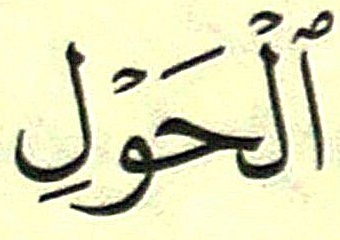 ٱلْحَوْلِ